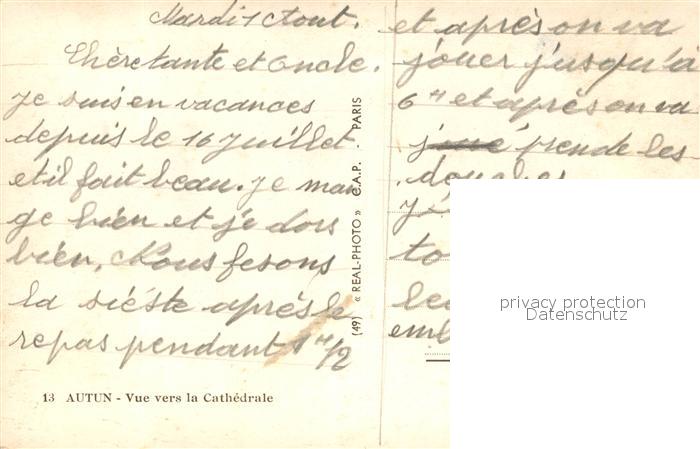 Mardi 1 Aout.
Chère tante et Oncle.
Je suis en vacances
depuis le 16 Juillet.
et il fait beau. Je man
ge bien et je dors
bien. Nous fesons
la siéste aprés le
repas pendant 1 H/2
et après on va
jouer jusqu'a
6 H et aprés on va
prende les
douches
to
emb
(49) « REAL-PHOTO » C.A.P. PARIS
13 AUTUN - Vue vers la Cathédrale
privacy protection
Datenschutz